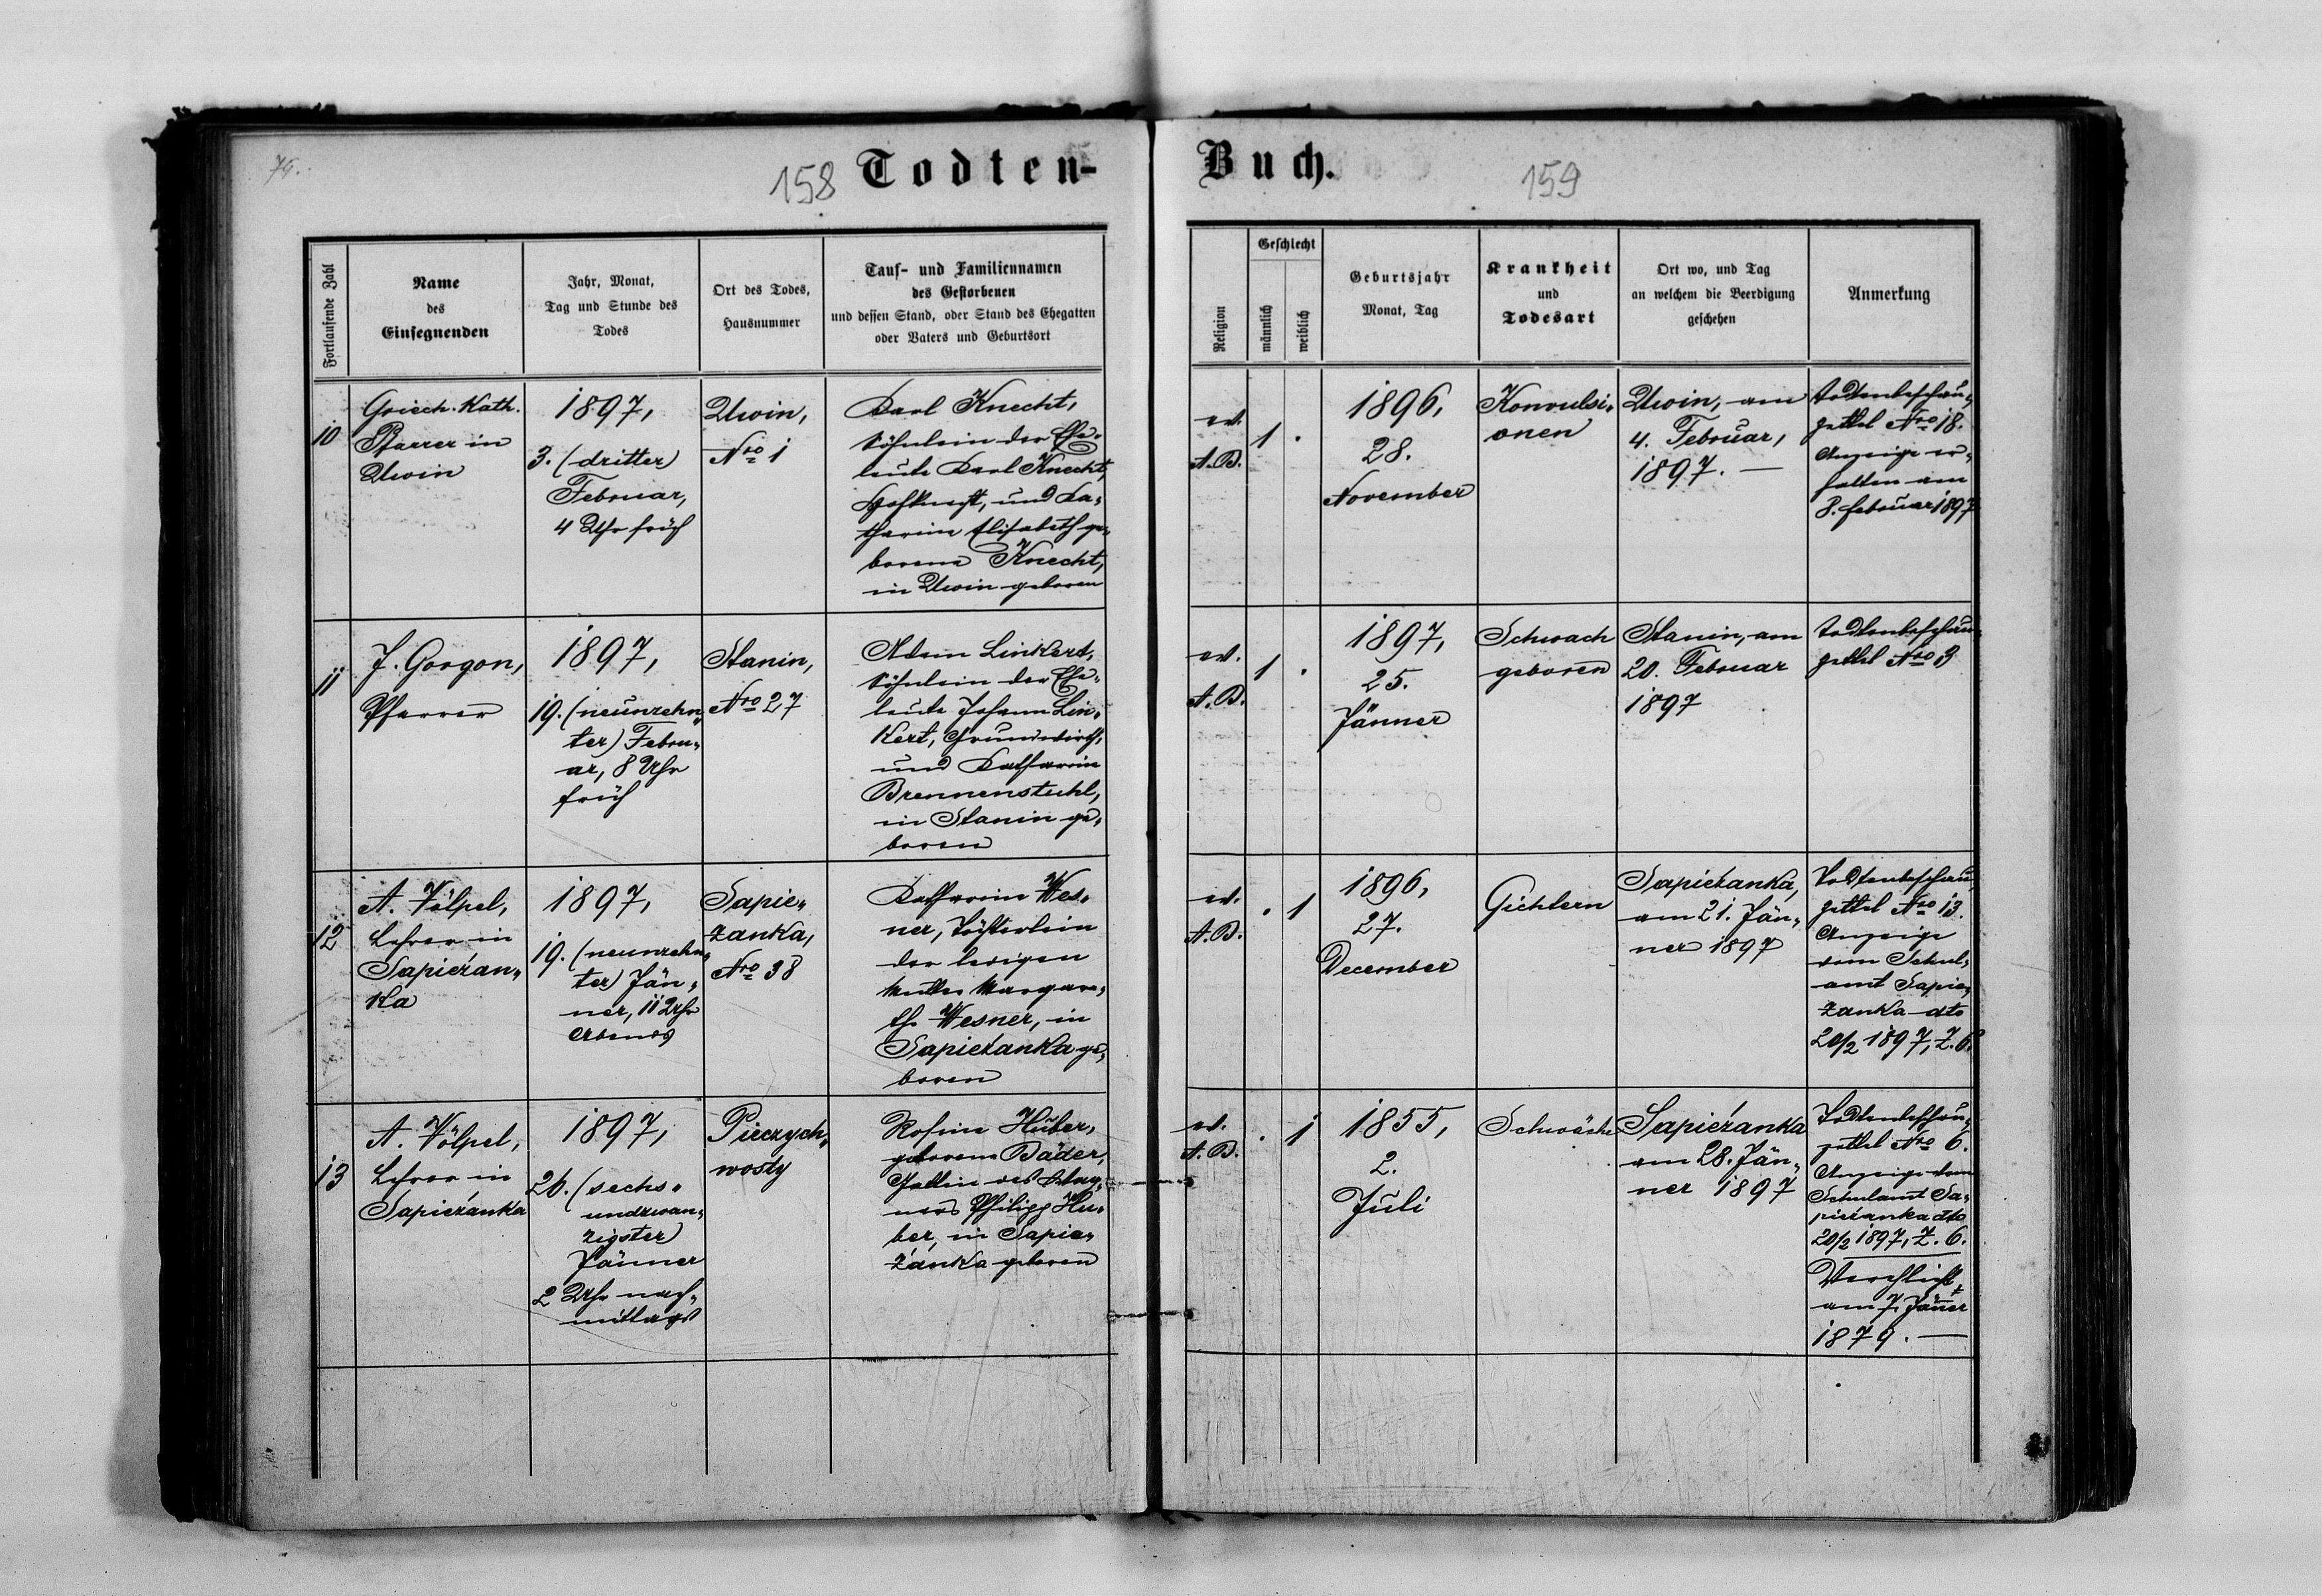 74.
158
Todten-
Buch.
159
Fortlaufende Zahl
Name
des
Einsegnenden
Jahr, Monat,
Tag und Stunde des
Todes
Ort des Todes,
Hausnummer
Tauf- und Familiennamen
des Gestorbenen
und dessen Stand, oder Stand des Ehegatten
oder Vaters und Geburtsort
Religion
Geschlecht
männlich
weiblich
Geburtsjahr
Monat, Tag
Krankheit
und
Todesart
Ort wo, und Tag
an welchem die Beerdigung
geschehen
Anmerkung
10
Griech. Kath.
Pfarrer in
Uwin
1897,
3. (dritter)
Februar,
4 Uhr früh
Uwin,
Nro 1
Karl Knecht,
Söhnlein der Ehe-
leute Karl Knecht,
Hofknecht, und Ka-
tharina Elisabeth ge-
borene Knecht,
in Uwin geboren
ev.
A.B.
1 .
1896,
28.
November
Konvulsi-
onen
Uwin, am
4. Februar,
1897. —
Todtenbeschau-
zettel Nro 18.
Anzeige er-
halten am
8. Februar 1897
11
J. Gorgon,
Pfarrer
1897,
19. (neunzehn-
ter) Febru-
ar, 8 Uhr
früh
Stanin,
Nro 27
Adam Linkert,
Söhnlein der Ehe-
leute Johann Lin-
kert, Grundwirth,
und Katharina
Brennenstuhl,
in Stanin ge-
boren
ev.
A.B.
1 .
1897,
25.
Jänner
Schwach
geboren
Stanin, am
20. Februar
1897
Todtenbeschau-
zettel Nro 3
12
A. Völpel,
Lehrer in
Sapieżan-
ka
1897,
19. (neunzehn-
ter) Jän-
ner, 11 Uhr
Abends
Sapie-
żanka,
Nro 38
Katharina Wes-
ner, Töchterlein
der ledigen
Mutter Margare-
th Wesner, in
Sapieżanka ge-
boren
ev.
A.B.
. 1
1896,
27.
December
Gichtern
Sapieżanka,
am 21. Jän-
ner 1897
Todtenbeschau-
zettel Nro 13.
Anzeige
vom Schul-
amt Sapie-
żanka dto
20/2 1897, Z. 6.
13
A. Völpel,
Lehrer in
Sapieżanka
1897,
26. (sechs-
undzwan-
zigster)
Jänner
2 Uhr nach-
mittags
Pieczych-
wosty
Rosina Huber,
geborene Bäder,
Gattin des Wag-
ners Philipp Hu-
ber, in Sapie-
żanka geboren
ev.
A.B.
. 1
1855,
2.
Juli
Schwäche
Sapieżanka
am 28. Jän-
ner 1897
Todtenbeschau-
zettel Nro 6.
Anzeige vom
Schulamt Sa-
pieżanka dto
20/2 1897, Z. 6.
Verehlicht
am 7. Jäner
1879. —